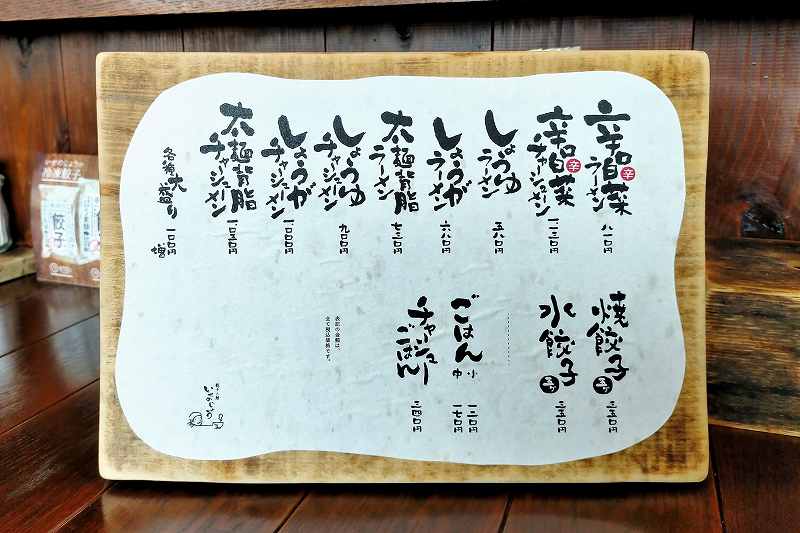 辛口白菜
ラーメン
辛
八一〇円
辛口白菜
チャーシューメン
辛
一一三〇円
しょうゆ
ラーメン
五八〇円
しょうが
ラーメン
六八〇円
太麺背脂
ラーメン
七三〇円
しょうゆ
チャーシューメン
九〇〇円
しょうが
チャーシューメン
一〇〇〇円
太麺背脂
チャーシューメン
一〇五〇円
各種大盛り
一〇〇円増
焼餃子
三五〇円
水餃子
三五〇円
ごはん
小 一二〇円
中 一七〇円
チャーシューごはん
三四〇円
表記の金額は、
全て税込価格です。
冷凍餃子
餃子